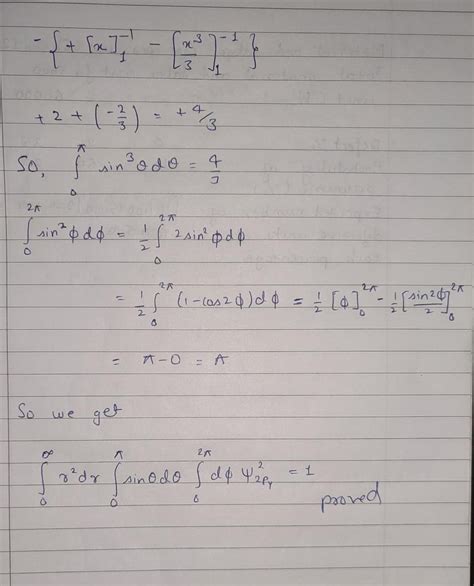 - { + [x]₁⁻¹ - [x³/3]₁⁻¹ }
+ 2 + (-2/3) = + 4/3
So, ∫₀^π sin³θdθ = 4/3
∫₀^2π sin²φdφ = 1/2 ∫₀^2π 2sin²φdφ
= 1/2 ∫₀^2π (1-cos2φ)dφ = 1/2 [φ]₀^2π - 1/2 [sin2φ/2]₀^2π
= π-0 = π
So we get
∫₀^∞ r²dr ∫₀^π sinθdθ ∫₀^2π dφ ψ²₂Py = 1
proved